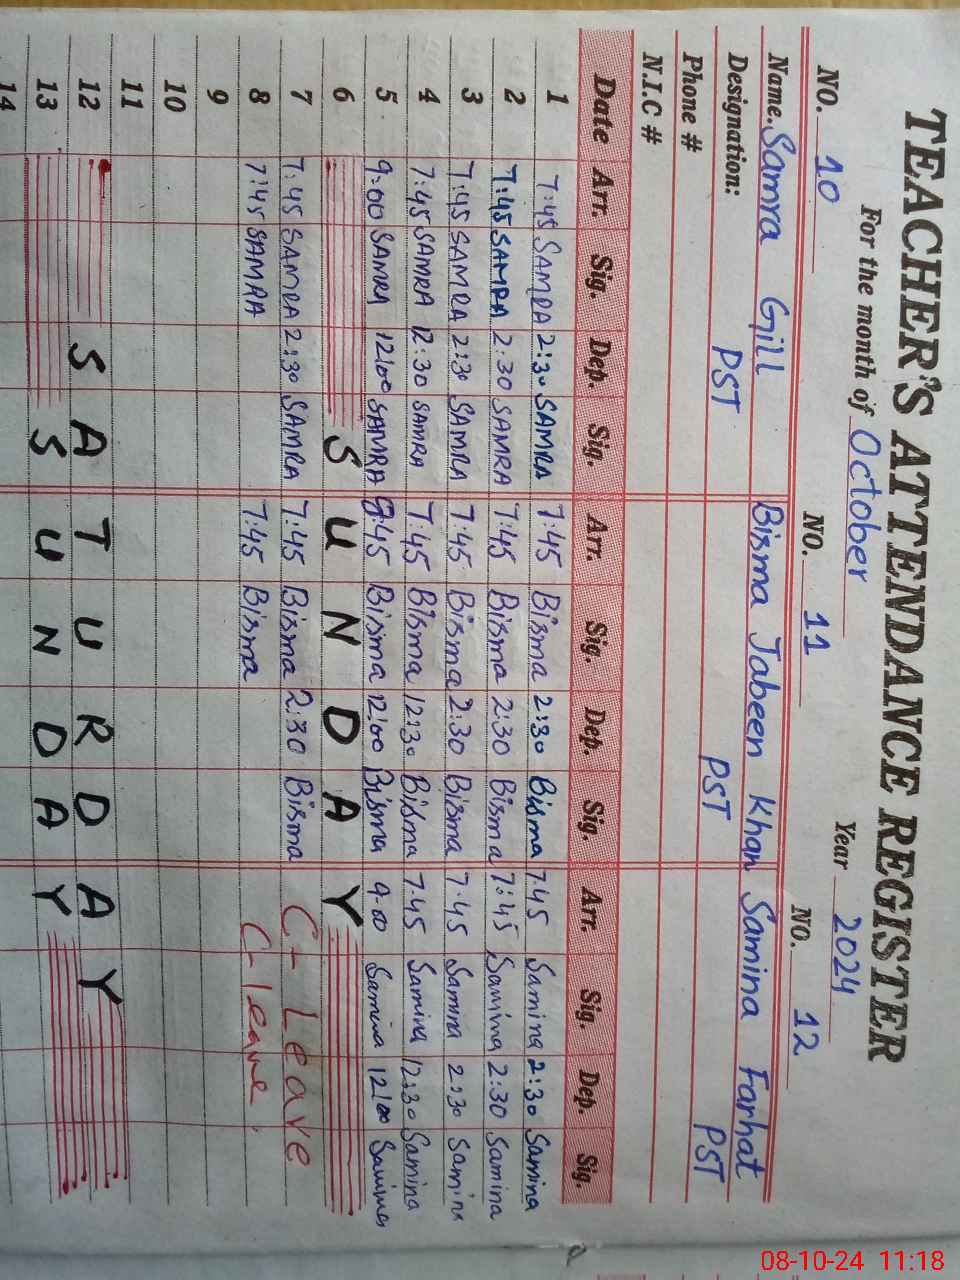 TEACHER'S ATTENDANCE REGISTER
For the month of October Year 2024
NO. 10 NO. 11 NO. 12
Name. Samra Gill Bisma Jabeen Khan Samina Farhat
Designation: PST PST PST
Phone #
N.I.C #
Date Arr. Sig. Dep. Sig. Arr. Sig. Dep. Sig. Arr. Sig. Dep. Sig.
1 7:45 SAMRA 2:30 SAMRA 7:45 Bisma 2:30 Bisma 7.45 Samina 2:30 Samina
2 7:45 SAMRA 2:30 SAMRA 7:45 Bisma 2:30 Bisma 7:45 Samina 2:30 Samina
3 7:45 SAMRA 2:30 SAMRA 7:45 Bisma 2:30 Bisma 7.45 Samina 2:30 Samina
4 7:45 SAMRA 12:30 SAMRA 7:45 Bisma 12:30 Bisma 7.45 Samina 12:30 Samina
5 9:00 SAMRA 12:00 SAMRA :45 Bisma 12:00 Bisma 9.00 Samina 12:00 Samina
6 SUNDAY
7 7:45 SAMRA 2:30 SAMRA 7:45 Bisma 2:30 Bisma C- Leave
8 7:45 SAMRA 7:45 Bisma C- leave.
9
10
11
12 SATURDAY
13 SUNDAY
14
08-10-24 11:18